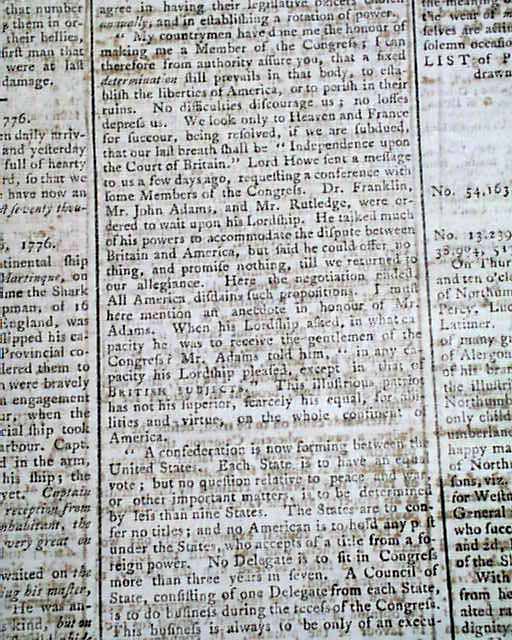 that number
g them in or-
their bellies,
first man that
were at last
damage.
776.
en daily arriv-
and yesterday
full of hearty
rd, so that we
e have now an
st seventy thou-
5, 1776.
tinental ship
Martinque, on
ime the Shark
pman, of 16
England, was
slipped his ca-
Provincial co-
dered them to
n were bravely
n engagement
ur, when the
cial ship took
arbour. Capt.
d in the arm,
his ship; the
yet." Captain
reception from
inhabitant, the
very great on
waited on the
ing his master,
He was an-
s kind, but on
agree in having their legislative bodies
annually, and in establishing a rotation of power.
" My countrymen have done me the honour of
making me a Member of the Congress; I can
therefore from authority assure you, that a fixed
determination still prevails in that body, to esta-
blish the liberties of America, or to perish in their
ruins. No difficulties discourage us; no losses
depress us. We look only to Heaven and France
for succour, being resolved, if we are subdued,
that our last breath shall be " Independence upon
the Court of Britain." Lord Howe sent a message
to us a few days ago, requesting a conference with
some Members of the Congress. Dr. Franklin,
Mr. John Adams, and Mr. Rutledge, were or-
dered to wait upon his Lordship. He talked much
of his powers to accommodate the dispute between
Britain and America, but said he could offer no-
thing, and promise nothing, till we returned to
our allegiance. Here the negotiation ended
All America disdains such propositions. I must
here mention an anecdote in honour of Mr.
Adams. When his Lordship asked, in what ca
pacity he was to receive the gentlemen of the
Congress? Mr. Adams told him, " in any ca-
pacity his Lordship pleased, except in that of
BRITISH SUBJECTS." This illustrious patriot
has not his superior, scarcely his equal, for abi
lities and virtue, on the whole continent of
America.
" A confederation is now forming between the
United States. Each State is to have an equal
vote; but no question relative to peace and war
or other important matters, is to be determined
by less than nine States. The States are to con-
fer no titles; and no American is to hold any post
under the States, who accepts of a title from a fo-
reign power. No Delegate is to sit in Congress
more than three years in seven. A Council of
State, consisting of one Delegate from each State,
is to do business during the recess of the Congress.
This business is always to be only of an execu-
the meaning
the wear of
selves are
solemn occasio
LIST of P
drawn
No. 54,163
No. 13,239
38,904, 51
On Thur
and ten o'cl
of Northum
Percy. Luc
Latimer.
of many g
of Alergon
of his bran
the illustri
Northumb
only child
umberlan
happy ma
of North
sons, viz.
for Westm
General
who succ
and 2d,
With
from he
alted ra
dignity